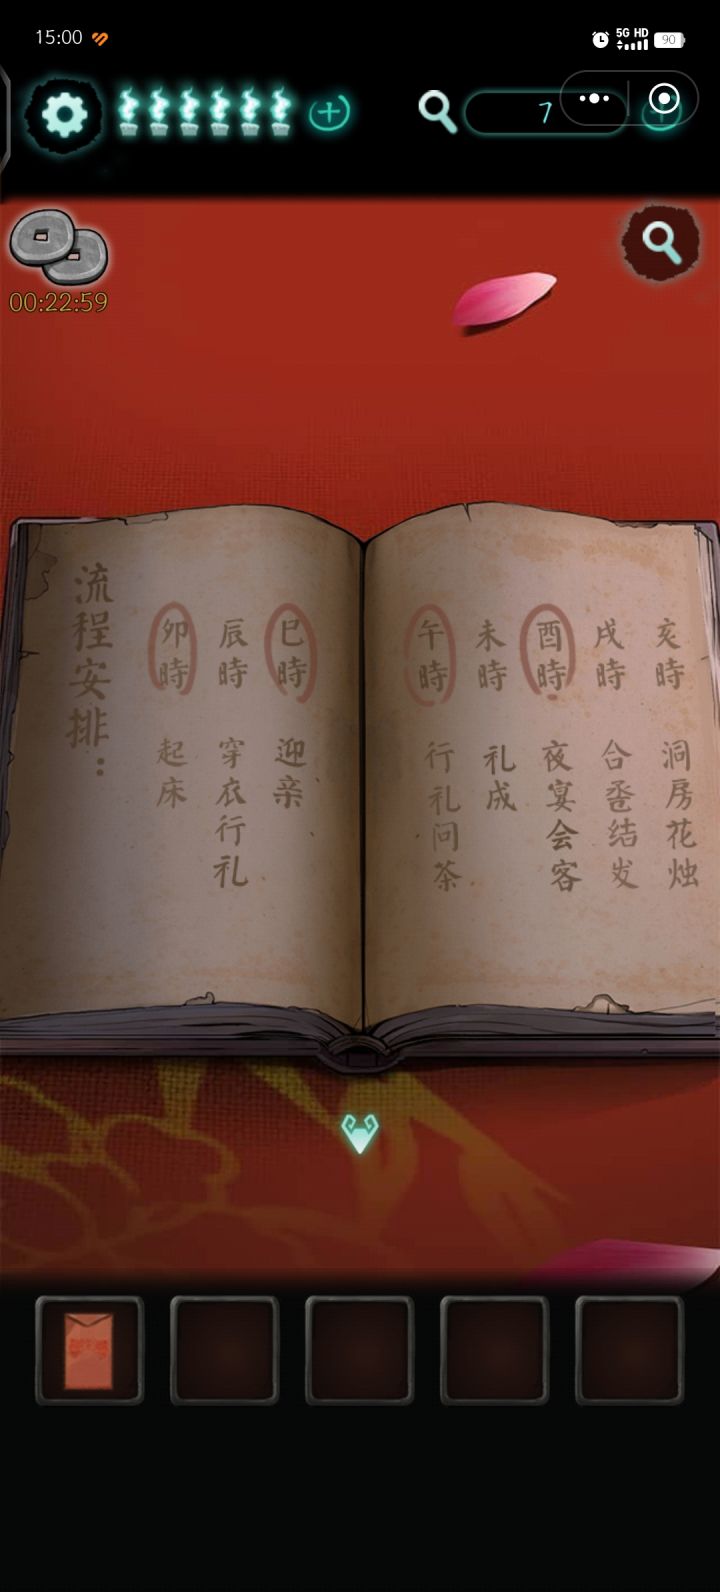 15:00
5G HD
90
7
00:22:59
流程安排：
卯時 起床
辰時 穿衣行礼
巳時 迎亲
午時 行礼问茶
未時 礼成
酉時 夜宴会客
戌時 合卺结发
亥時 洞房花烛